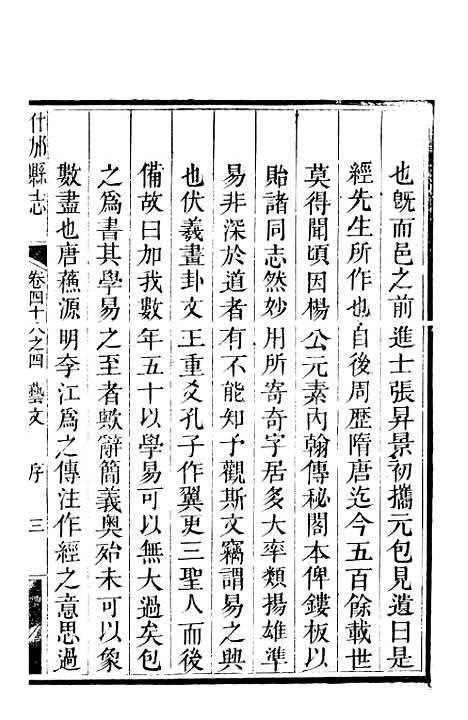 也旣而邑之前進士張昇景初攜元包見遺曰是
經先生所作也自後周歷隋唐迄今五百餘載世
莫得聞頃因楊公元素內翰傳秘閣本俾鏤板以
貽諸同志然妙用所寄奇字居多大率類揚雄準
易非深於道者有不能知予觀斯文竊謂易之興
也伏羲畫卦文王重爻孔子作翼更三聖人而後
備故曰加我數年五十以學易可以無大過矣包
之爲書其學易之至者歟辭簡義奧殆未可以象
數盡也唐蘓源明李江爲之傳注作經之意思過
什邡縣志 卷四十八之四 藝文 序 三